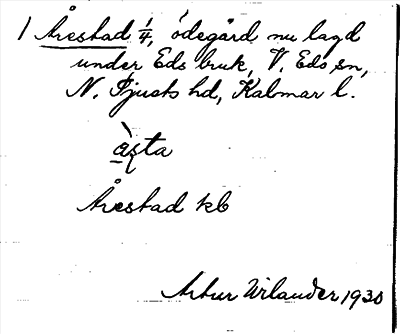 1 Årestad 1/4, ödegård nu lagd
under Eds bruk, V. Eds sn,
N. Tjusts hd, Kalmar l.
Årestad kb
Artur Wilander 1930